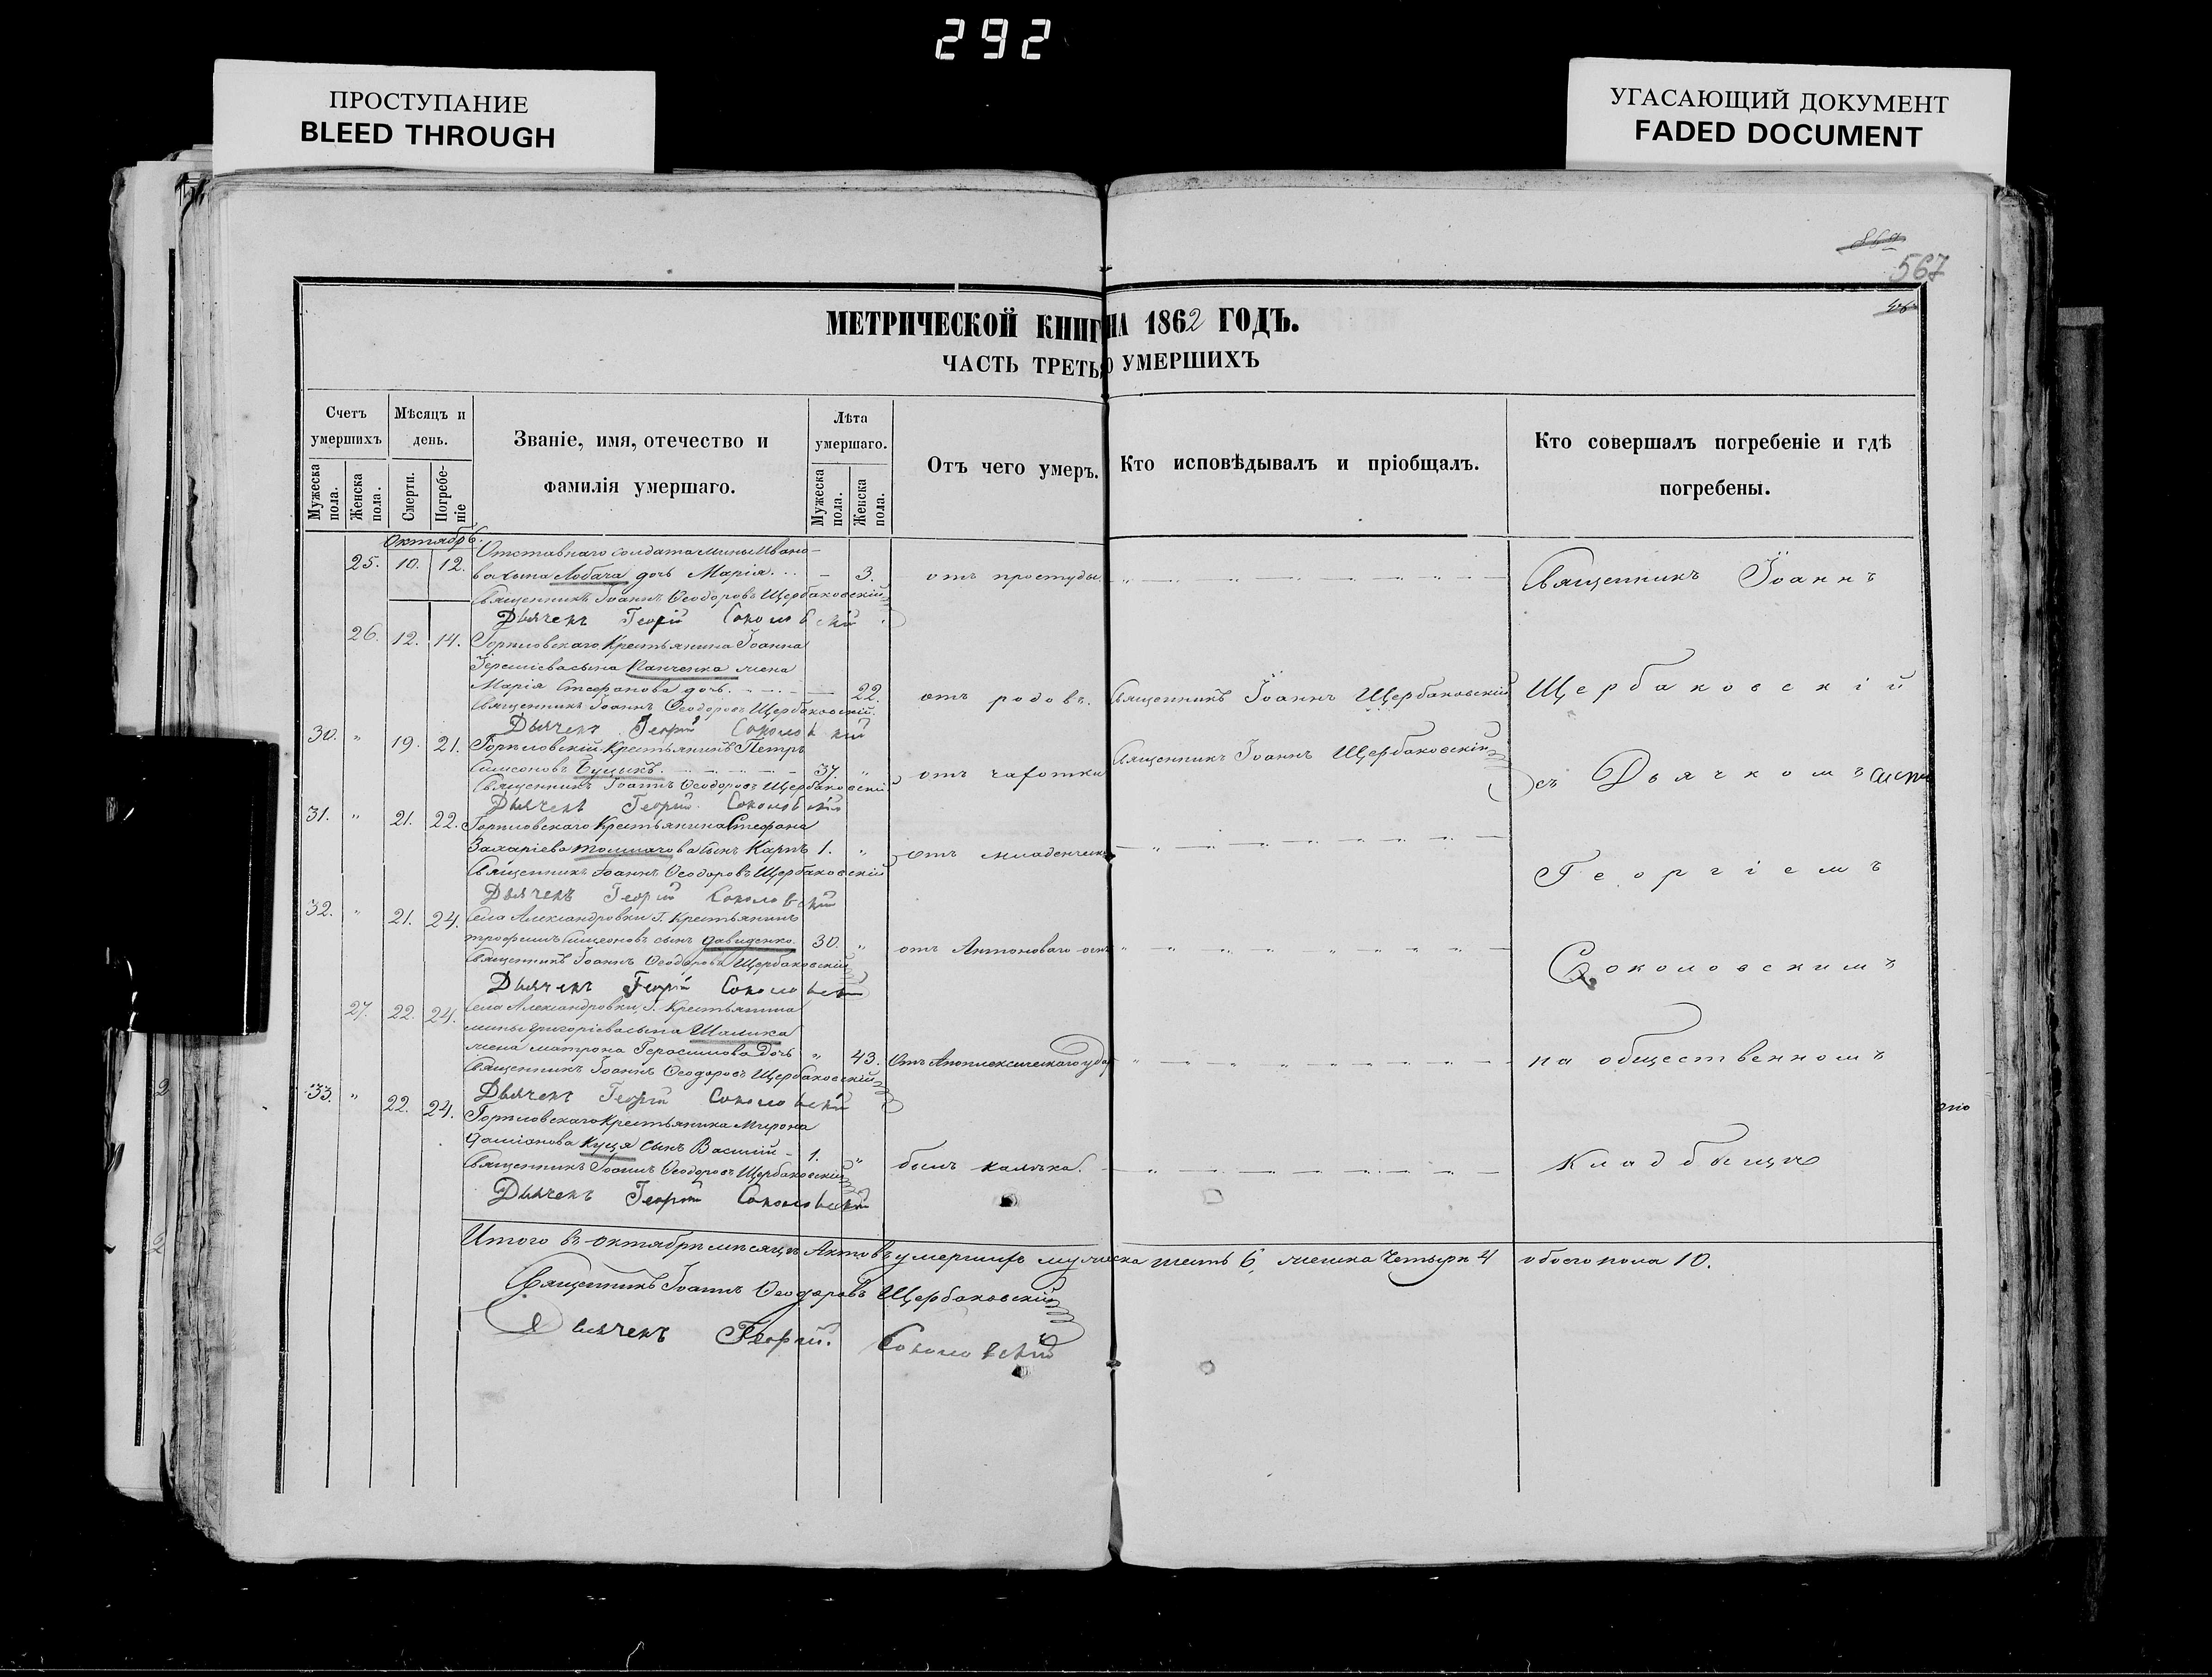 292
ПРОСТУПАНИЕ
BLEED THROUGH
УГАСАЮЩИЙ ДОКУМЕНТ
FADED DOCUMENT
567
МЕТРИЧЕСКОЙ КНИГ НА 1862 ГОДЪ.
ЧАСТЬ ТРЕТЬЯ О УМЕРШИХЪ
Счетъ умершихъ
Мужеска пола.
Женска пола.
Мѣсяцъ и день.
Смерти.
Погребеніе
Званіе, имя, отечество и фамилія умершаго.
Лѣта умершаго.
Мужеска пола.
Женска пола.
Отъ чего умеръ.
Кто исповѣдывалъ и пріобщалъ.
Кто совершалъ погребеніе и гдѣ погребены.
Октябрь.
25. 10. 12. Отставнаго солдата Мины Ивано-
ва сына Лобача дочь Марія. — 3. отъ простуды
Священникъ Іоаннъ Ѳеодоровъ Щербаковскій
Дьячекъ Георгій Соколовскій
26. 12. 14. Крестьянина Іоанна
Іереміева сына Панченка жена
Марія Стефанова дочь. — 22. отъ родовъ. Священникъ Іоаннъ Щербаковскій
Священникъ Іоаннъ Ѳеодоровъ Щербаковскій.
Дьячекъ Георгій Соколовскій
30. " 19. 21. Крестьянинъ Петръ
Симеоновъ Буцыкъ. 37. " отъ чахотки Священникъ Іоаннъ Щербаковскій
Священникъ Іоаннъ Ѳеодоровъ Щербаковскій
Дьячекъ Георгій Соколовскій
31. " 21. 22. Крестьянина Стефана
Захаріева Толмачова сынъ Карпъ 1. " отъ
Священникъ Іоаннъ Ѳеодоровъ Щербаковскій
Дьячекъ Георгій Соколовскій
32. " 21. 24. Села Александровки Г. Крестьянинъ
Трофимъ Симеоновъ сынъ Давиденко. 30. " отъ Антоноваго огня
Священникъ Іоаннъ Ѳеодоровъ Щербаковскій
Дьячекъ Георгій Соколовскій
27. 22. 24. Села Александровки, Г. Крестьянина
Мины Григоріева сына Шалика
жена Матрона Герасимова дочь " 43. Отъ Апоплексическаго удара
Священникъ Іоаннъ Ѳеодоровъ Щербаковскій
Дьячекъ Георгій Соколовскій
33. " 22. 24. Крестьянина Мирона
Даміанова Куця сынъ Василій - 1. " былъ калѣка.
Священникъ Іоаннъ Ѳеодоровъ Щербаковскій
Дьячекъ Георгій Соколовскій
Священникъ Іоаннъ
Щербаковскій
съ Дьячкомъ
Георгіемъ
Соколовскимъ
на общественномъ
кладбищѣ
Итого въ октябрѣ мѣсяцѣ Актовъ умершихъ мужеска шесть 6, женска четыре 4 обоего пола 10.
Священникъ Іоаннъ Ѳеодоровъ Щербаковскій
Дьячекъ Георгій. Соколовскій